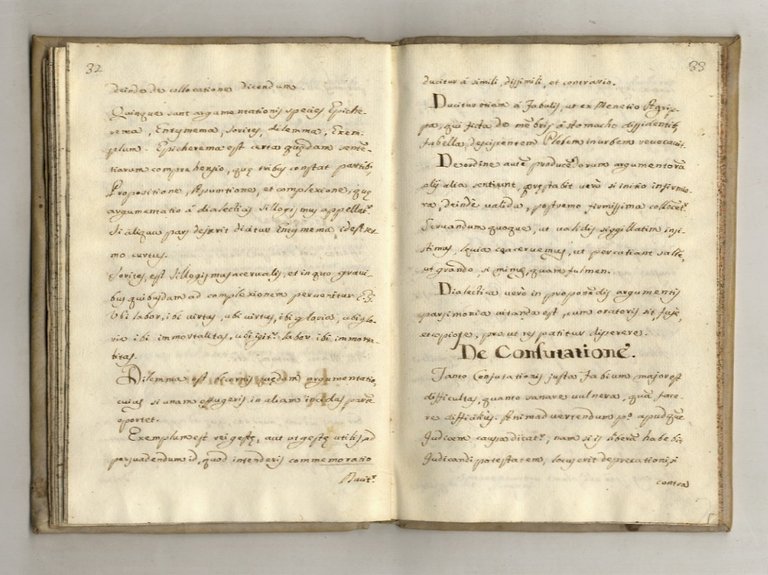 32
deinde de collocatione dicendum.
Quinque sunt argumentationis species, Epiche-
rema, Entymema, Sorites, dilemma, Exem-
plum. Epicherema est certa quędam senten-
tiarum comprehensio, quę tribus constat partib;
Propositione, Assumtione, et complexione
argumentatio á dialecticis sillogismus appellatr.
Si aliqua pars desierit dicitur entymema, idest ser-
mo curtus.
Sorites, est sillogismus acervalis, et in quo gradi-
bus quibusdam ad complexionem pervenitur
Ubi labor, ibi virtus, ubi virtus, ibi gloria, ubi glo-
ria ibi immortalitas, ubi igitr. labor ibi immorta-
litas.
Dilemma est bicornis quędam argumentatio,
cuius si unam effugeris in aliam incidas parte
oportet.
Exemplum est rei gestę, aut ut gestę utilis ad
persuadendum id, quod intenderis commemoratio
Ducitr.
33
ducitur á simili, dissimili, et contrario.
Ducitur etiam á fabulis, ut ex Menetio Agrip-
pa, qui ficta de mēbris á stomacho dissidentib;
fabella, desipientem Plebem in urbem revocavit.
De ordine autē producēdorum argumentorū
alij alia sentiunt, pręstabit verò si initio infirmio-
ra, deinde valida, postremo firmissima colloces.
Servandum quoque, ut validis singillatim insi-
stimus levia coacervemus, ut percutiant saltē,
ut grando si minus quam fulmen.
Dialectica verò in proponēdis argumentis
parsimonia vitanda est, cum oratoris sit fuse,
et copiose, prout res patitur disserere.
De Confutatione.
Tanto Confutationis justa fabium major est
difficultas, quanto sanare vulnera, quā face-
re difficilius. Animadvertendum apud quē
Judicem causa dicatr, nam si is liberē habebit
Judicandi potestatem, locus erit deprecationis
contra